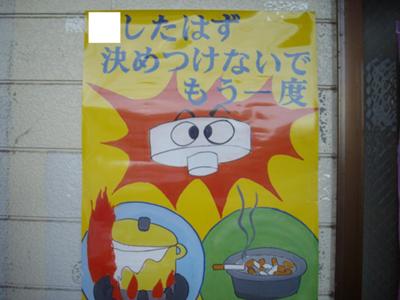 したはず
決めつけないで
もう一度